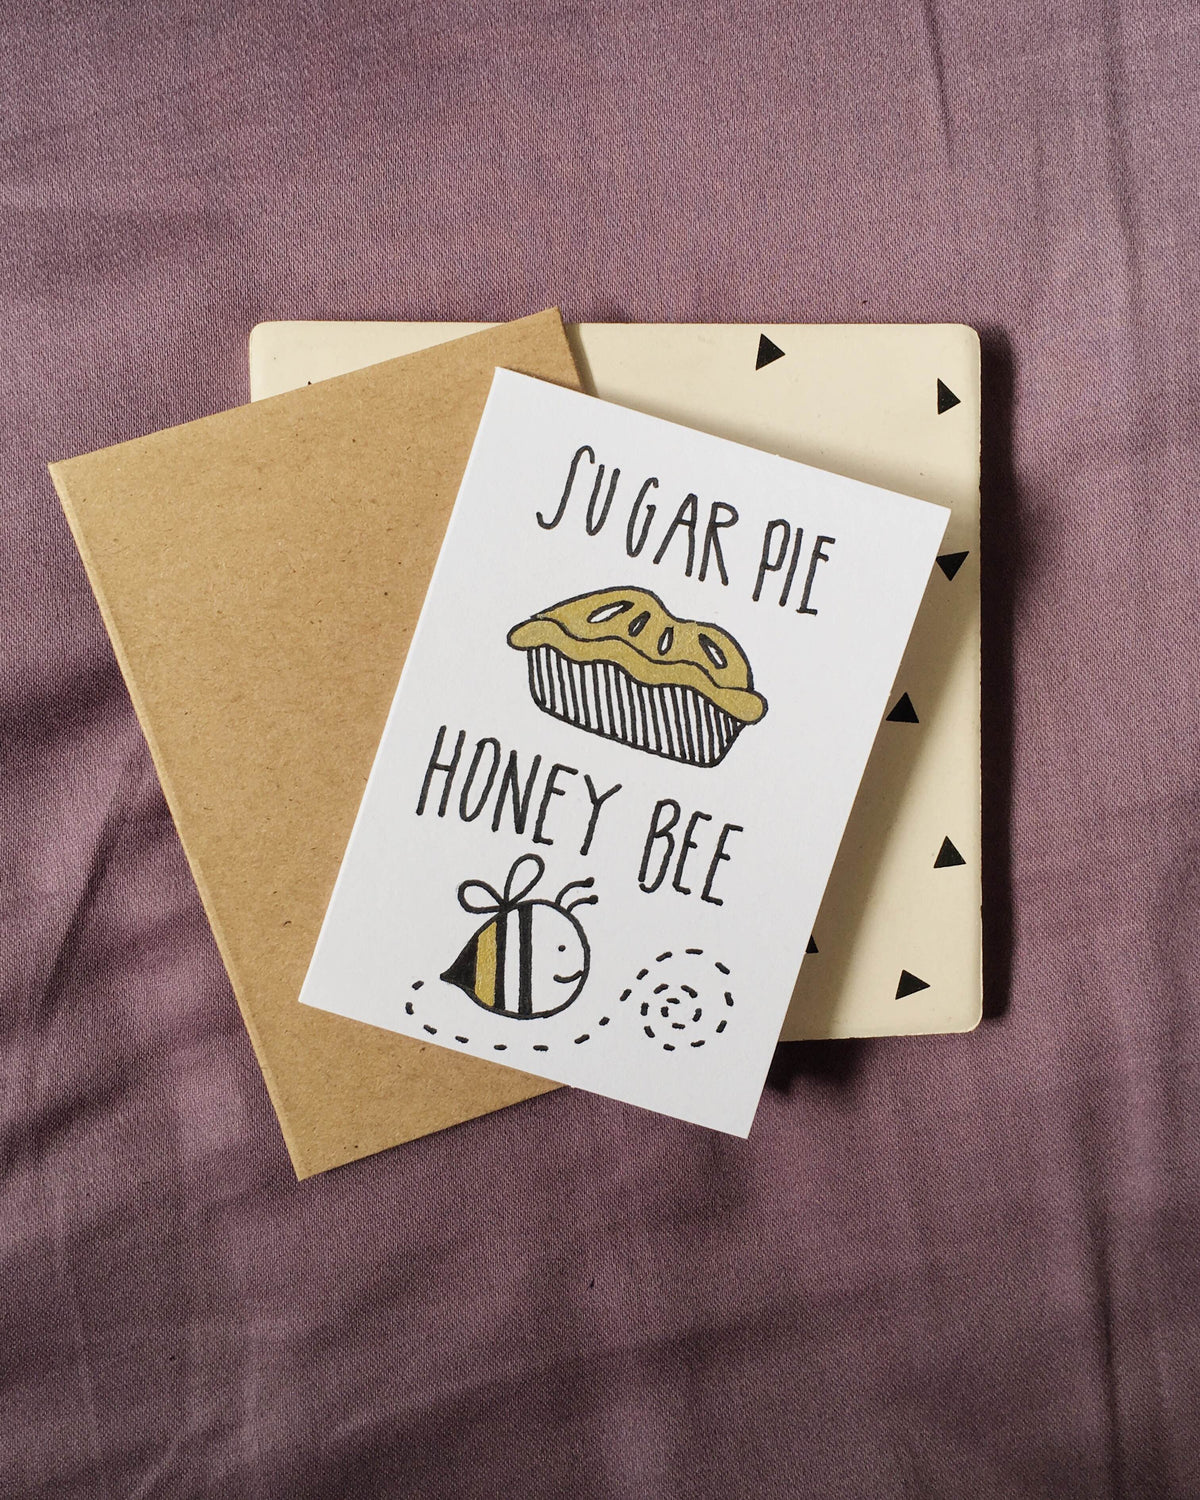 SUGAR PIE
HONEY BEE